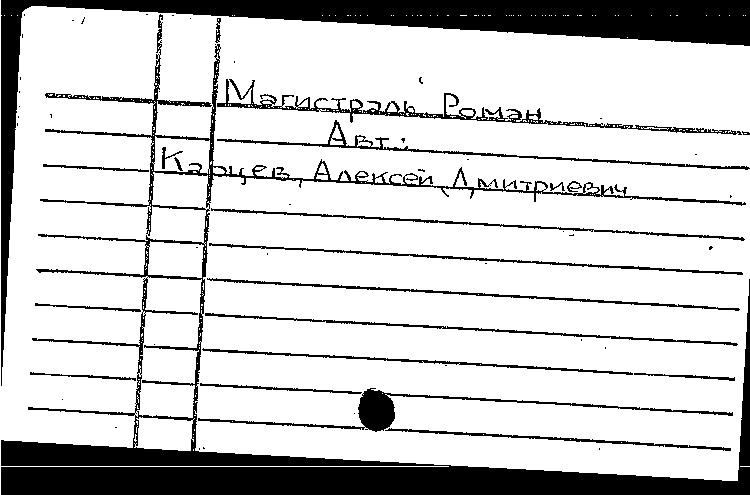 Магистраль. Роман
Авт.:
Карцев, Алексей Дмитриевич